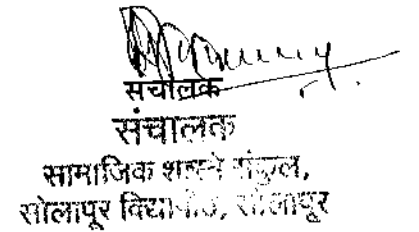 संचालक
संचालक
सामाजिक शास्त्रे संकुल,
सोलापूर विद्यापीठ, सोलापूर